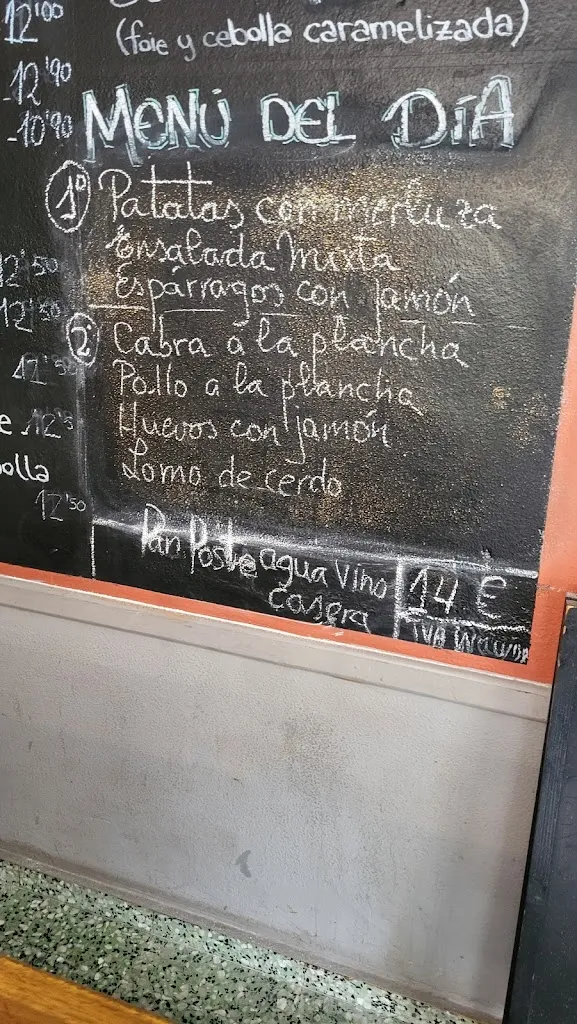 12'00
(foie y cebolla caramelizada)
12'90
10'90
MENÚ DEL DÍA
1º Patatas con merluza
Ensalada Mixta
Espárragos con jamón
12'50
12'50
2º Cabra a la plancha
12'50
Pollo a la plancha
e 12'5
Huevos con jamón
olla
Lomo de cerdo
12'50
Pan Postre agua Vino
casera
14 €
IVA